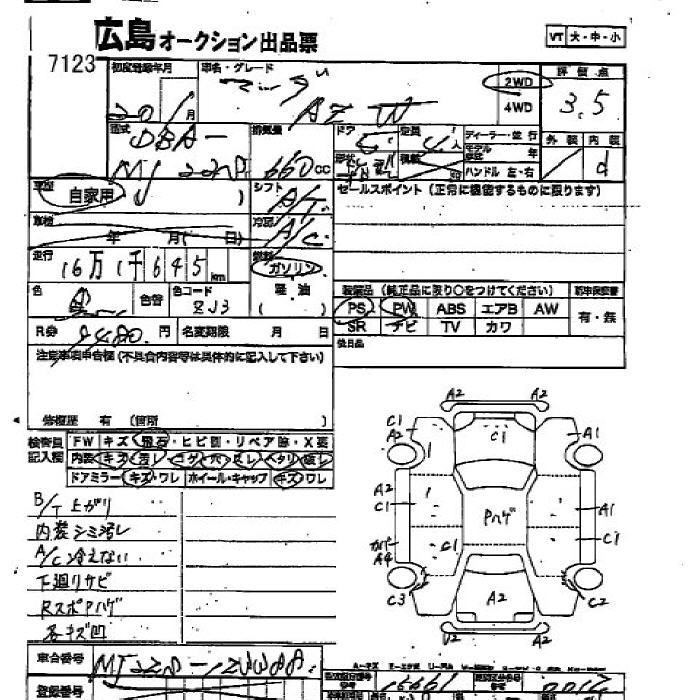 広島オークション出品票
VT 大・中・小
7123
初度登録年月
車名・グレード
2WD
4WD
評価点
3.5
20/ 月
AZ W
型式
DBA-
MJ22S
排気量
660cc
ドア 5
定員 4人
形状
積載 kg
ディーラー・並行
モデル
年式 年
ハンドル 左・右
外装 内装
d
車歴
自家用
シフト
A/T
セールスポイント(正常に機能するものに限ります)
車検
年 月( 日)
冷房
A/C
走行
16万1千645km
燃料
ガソリン
軽油
( )
色
色替
色コード
ZJ3
装備品(純正品に限り○をつけてください)
新車保証書
PS PW ABS エアB AW
SR ナビ TV カワ
有・無
R券
9480円
名変期限 月 日
後日品
注意事項申告欄(不具合内容等は具体的に記入して下さい)
修復歴 有(箇所 )
検査員
記入欄
FW キズ・飛石・ヒビ割・リペア跡・X要
内装 キズ・汚レ・コゲ・穴・スレ・ヘタリ・破レ
ドアミラー キズ・ワレ ホイール・キャップ キズ・ワレ
B/T 上がり
内装シミ汚レ
A/C 冷えない
下廻りサビ
RスポPハゲ
各キズ凹
A2 A2
C1
A2
C1
A1
A2
C1
Pハゲ
A1
C1
カバー
A4
C1
C3
A2
C2
V2 A2
車台番号
MJ22S-
登録番号
16661